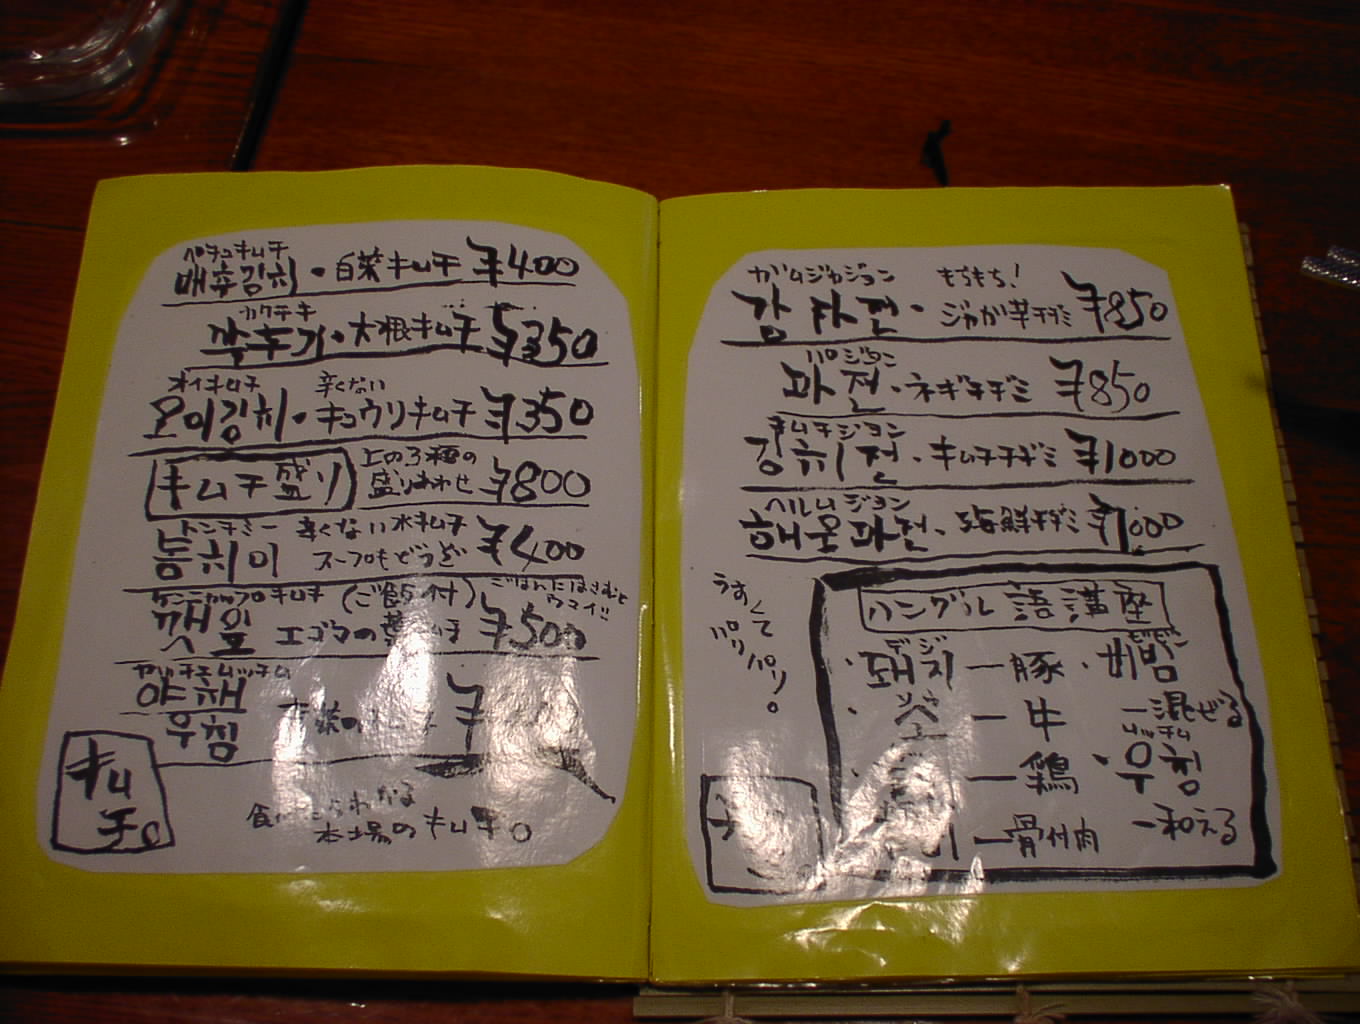 ペチュキムチ
배추김치・白菜キムチ ¥400
カクテキ
깍두기・大根キムチ ¥350
オイキムチ 辛くない
오이김치・キュウリキムチ ¥350
キムチ盛り 上の3種の
盛りあわせ ¥800
トンチミー 辛くない水キムチ
동치미 スープもどうぞ ¥400
ケンニャップキムチ (ご飯付) ごはんにはさむと
ウマイ!!
깻잎 エゴマの葉 ¥500
야채
우침 ¥
キム
チ。
食べ わかる
本場のキムチ。
ガムジャジョン もちもち!
감자전・ジャガ芋チヂミ ¥850
パジョン
파전・ネギチヂミ ¥850
キムチジョン
김치전・キムチチヂミ ¥1000
ヘルムジョン
해물파전・海鮮チヂミ ¥1000
うすくて
パリパリ。
ハングル語講座
デジ ビビン
・돼지ー豚・비빔
ー混ぜる
・소ー牛
ムッチム
ー鶏・무침
ー和える
ー骨付肉
チ